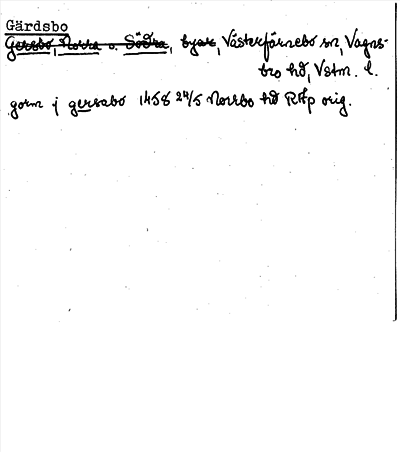 Gärdsbo
Gersbo, Norra o. Södra, byar, Västerfärnebo sn, Vagns-
bro hd, Vstm. l.
gorm j gersabo 1458 24/5 Norrbo hd RAp orig.